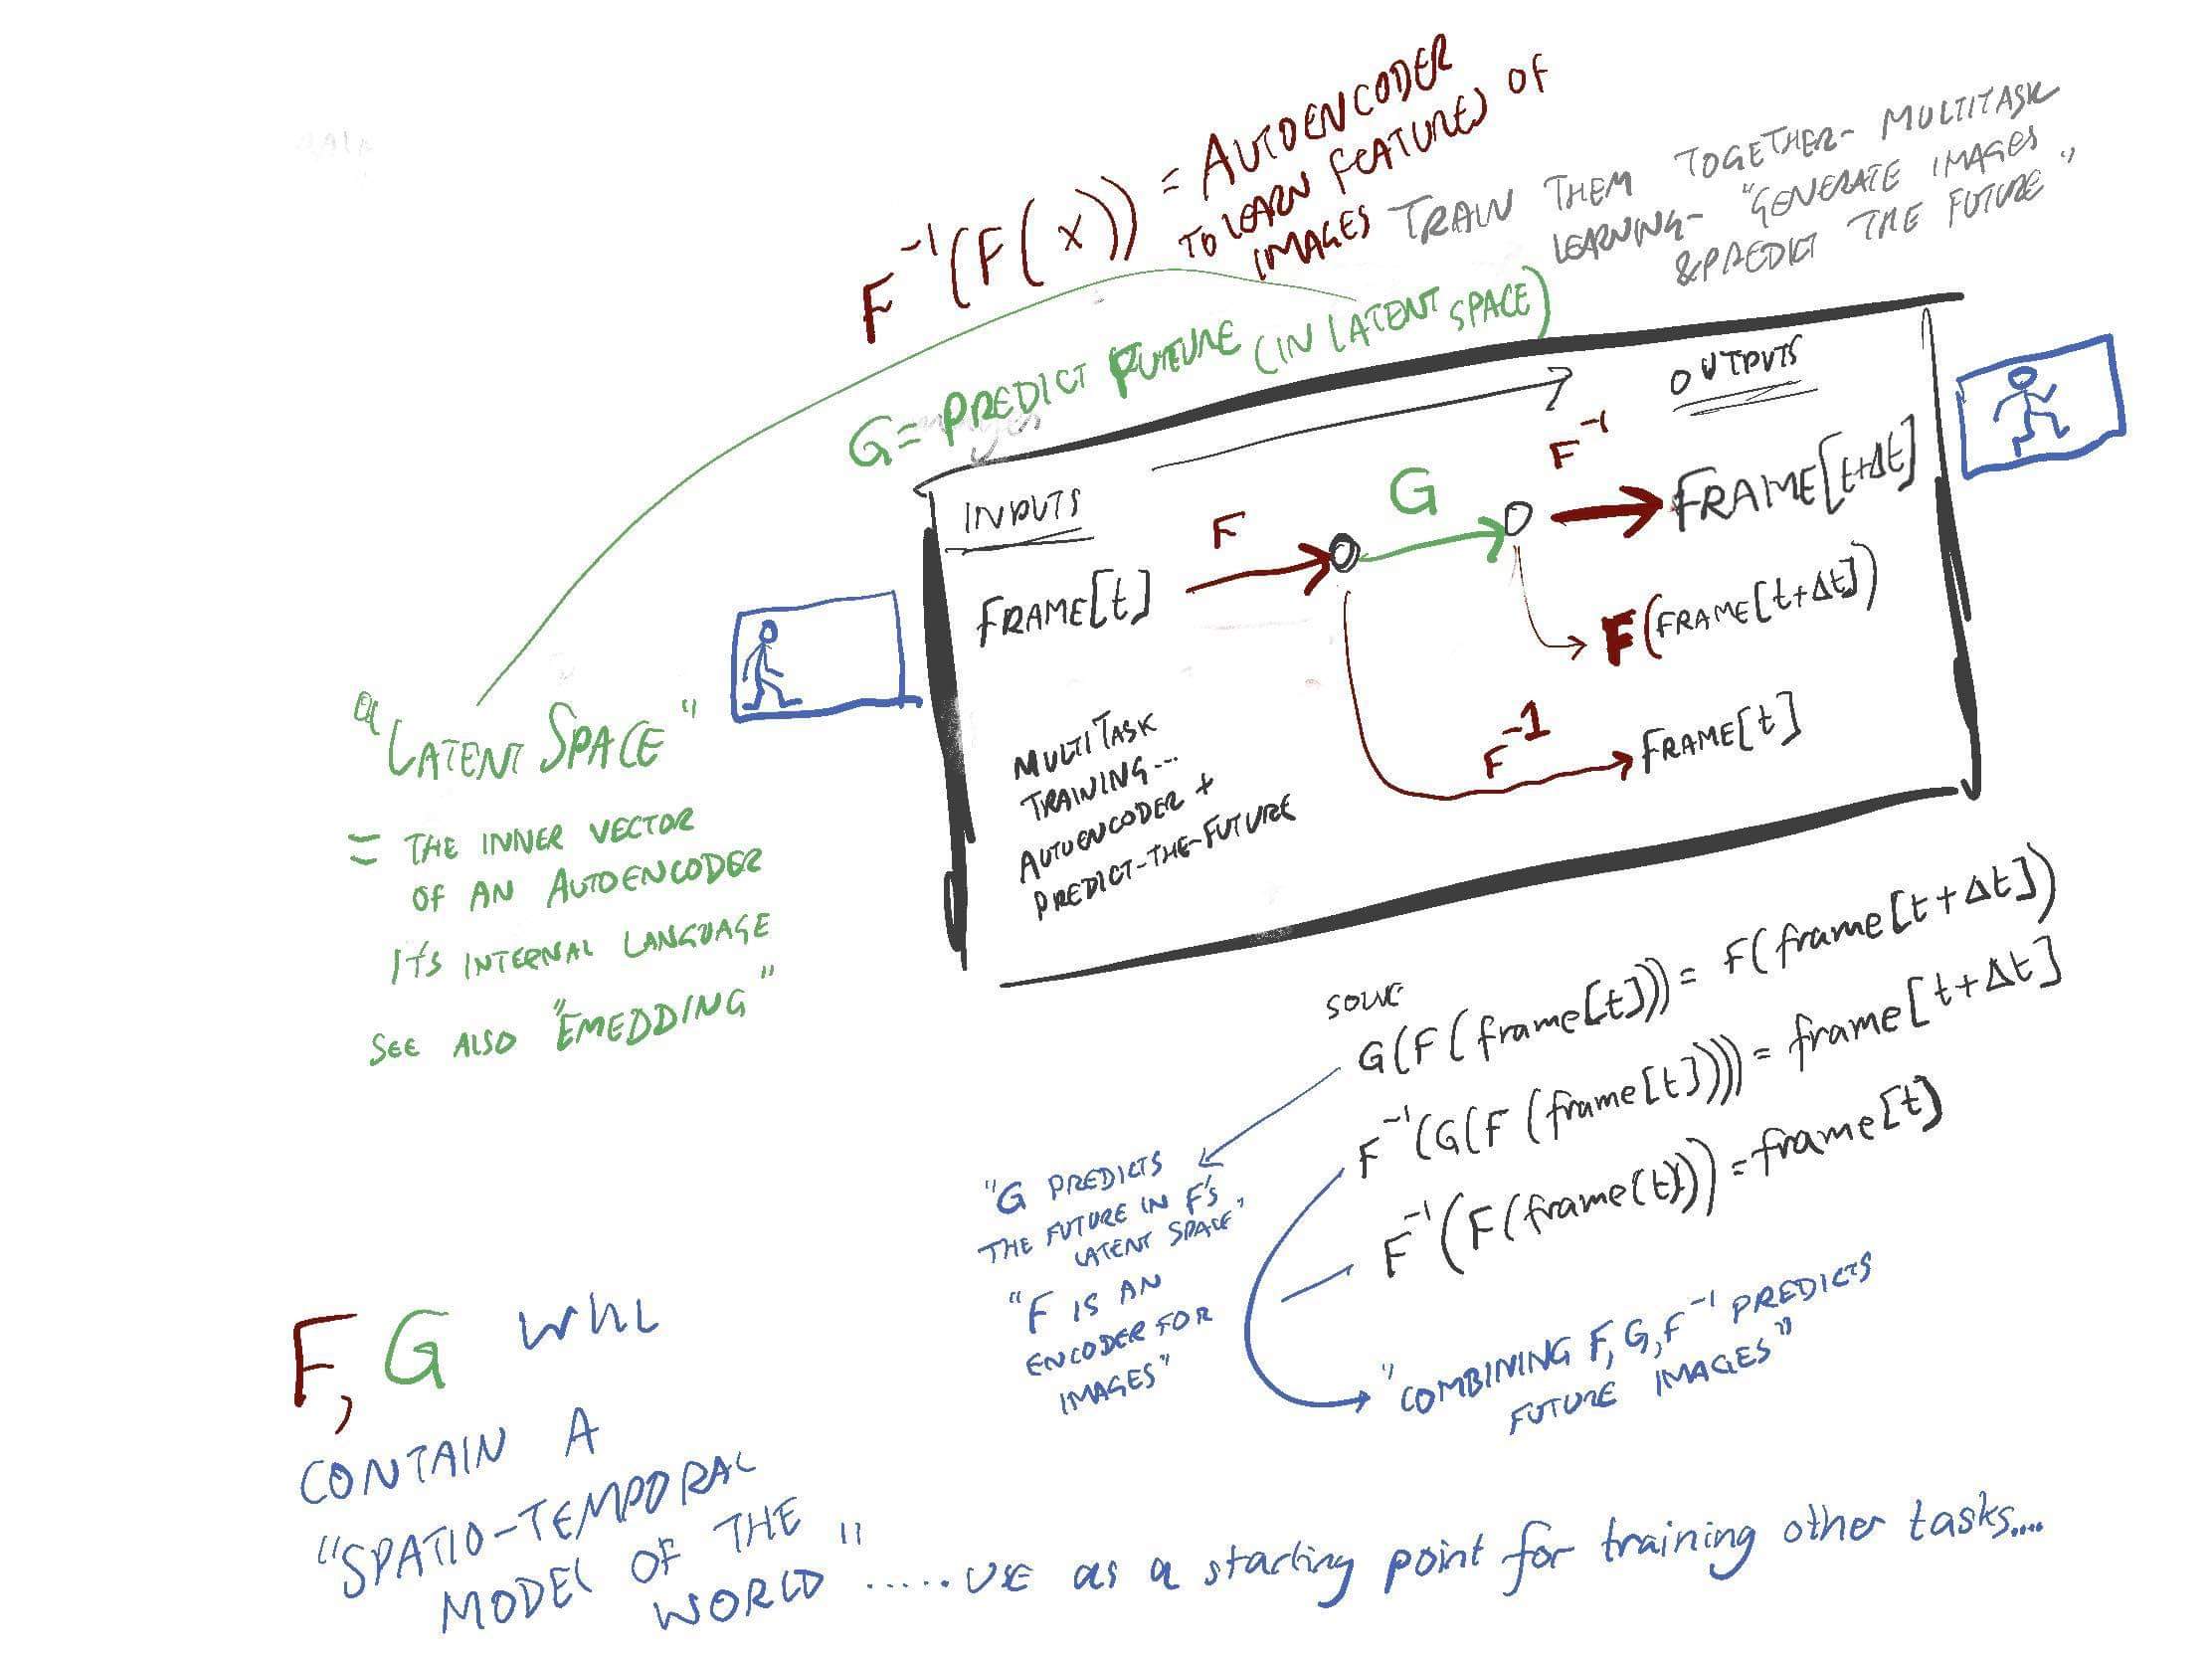 F⁻¹(F(x)) = AUTOENCODER
TO LEARN FEATURES OF
IMAGES
TRAIN THEM TOGETHER- MULTITASK
LEARNING- "GENERATE IMAGES
&PREDICT THE FUTURE"
G= PREDICT FUTURE (IN LATENT SPACE)
INPUTS
OUTPUTS
FRAME[t]
F
G
F⁻¹
FRAME[t+Δt]
F(FRAME[t+Δt])
F⁻¹
FRAME[t]
MULTITASK
TRAINING...
AUTOENCODER +
PREDICT-THE-FUTURE
"LATENT SPACE"
= THE INNER VECTOR
OF AN AUTOENCODER
ITS INTERNAL LANGUAGE
SEE ALSO "EMEDDING"
SOLVE
G(F(frame[t])) = F(frame[t+Δt])
F⁻¹(G(F(frame[t]))) = frame[t+Δt]
F⁻¹(F(frame(t))) = frame[t]
"G PREDICTS
THE FUTURE IN F'S
LATENT SPACE"
"F IS AN
ENCODER FOR
IMAGES"
"COMBINING F, G, F⁻¹ PREDICTS
FUTURE IMAGES"
F, G WILL
CONTAIN A
"SPATIO-TEMPORAL
MODEL OF THE
WORLD" ..... USE as a starting point for training other tasks....